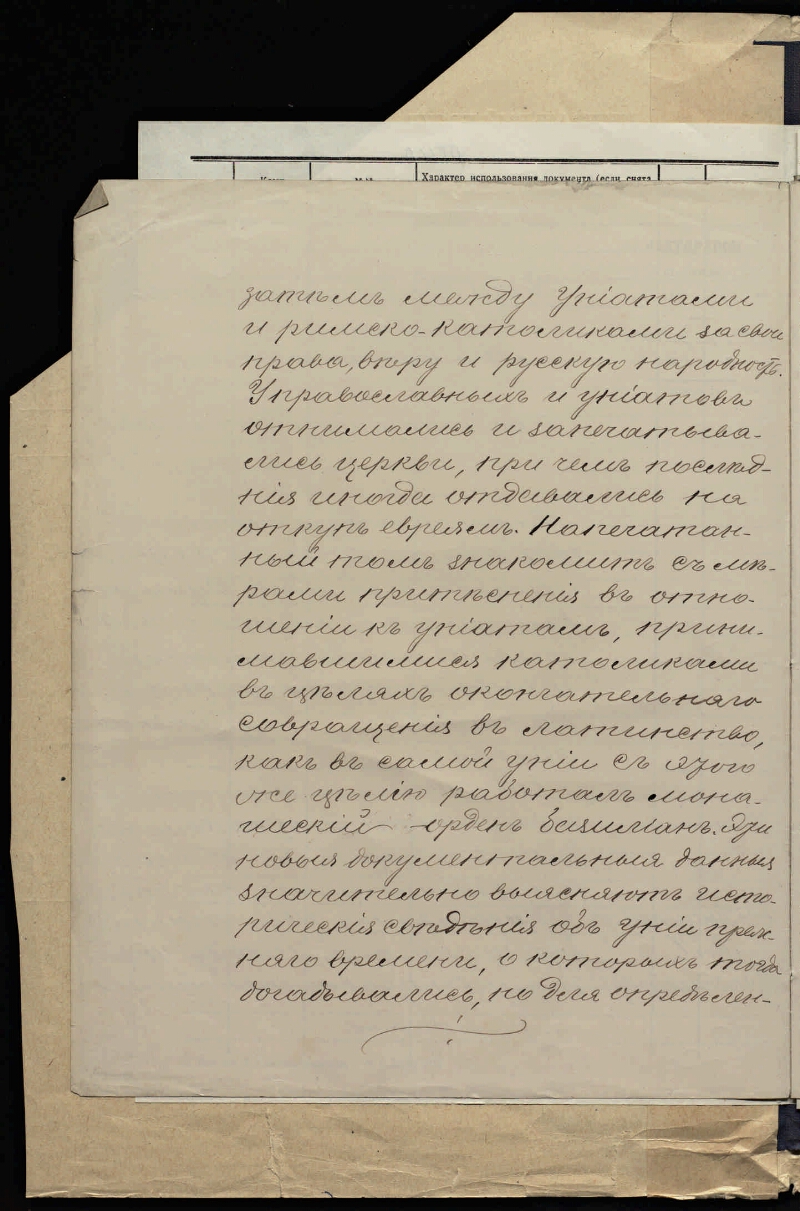 Характер использования документа (если снята
затѣмъ между Уніатами
и римско-католиками за свои
права, вѣру и русскую народность.
У православныхъ и уніатовъ
отнимались и запечатыва-
лись церкви, при чемъ послѣд-
нія иногда отдавались на
откупъ евреямъ. Напечатан-
ный томъ знакомитъ съ мѣ-
рами притѣсненія въ отно-
шеніи къ уніатамъ, прини-
мавшимися католиками
въ цѣляхъ окончательнаго
совращенія въ латинство,
какъ въ самой уніи съ этою
же цѣлію работалъ мона-
шескій орденъ базиліанъ. Эти
новыя документальныя данныя
значительно выясняютъ исто-
рическія свѣдѣнія объ уніи преж-
няго времени, о которыхъ тогда
догадывались, но для опредѣлен-